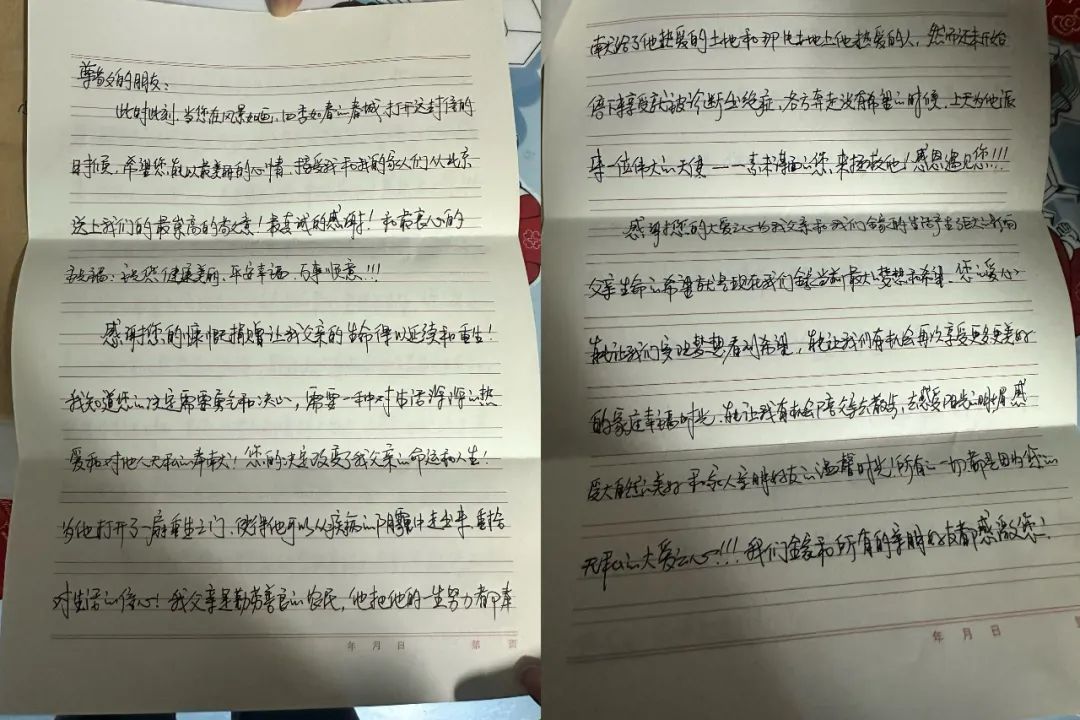 尊敬的朋友：
此时此刻，当您在风景如画，四季如春的春城，打开这封信的
时候，希望您能以最美丽的心情，接受我和我的家人们从北京
送上我们的最崇高的敬意！最真诚的感谢！和最衷心的
祝福：祝您健康美丽、平安幸福、百事顺意！！！
感谢您的慷慨捐赠让我父亲的生命得以延续和重生！
我知道您的决定需要勇气和决心，需要一种对生活深深的热
爱和对他人无私的奉献！您的决定改变了我父亲的命运和人生！
为他打开了一扇重生之门，使得他可以从疾病的阴霾中走出来，重拾
对生活的信心！我父亲是勤劳善良的农民，他把他的一生努力都奉
年 月 日 第 页
献给了他热爱的土地和那片土地上他热爱的人，然而还未开始
停下来享受就被诊断出绝症，各方奔走没有希望的时候，上天为他派
来一位伟大的天使——素未谋面的您，来拯救他！感恩遇见您！！！
感谢您的大爱之心为我父亲和我们全家的生活产生强大的影响
父亲生命的希望就是现在我们全家当前最大的梦想和希望。您的爱心
能让我们实现梦想看到希望，能让我们有机会再次享受更多更美好
的家庭幸福时光，能让我有机会陪父亲去散步，去感受阳光的明媚，感
受大自然的美好和家人亲朋好友的温馨时光！所有的一切都是因为您的
无私的大爱之心！！！我们全家和所有的亲朋好友都感激您！
年 月 日